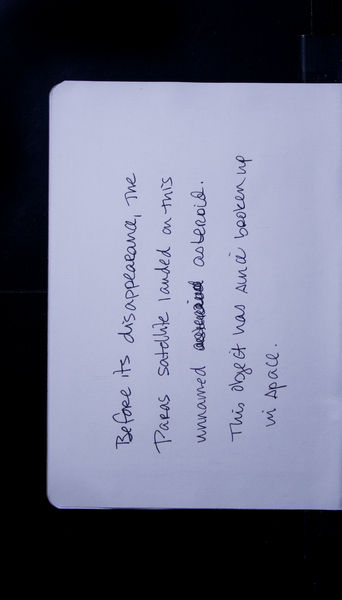 Before its disappearance, The
Paras satellite landed on this
unnamed asteroid.
This object has since broken up
in space.